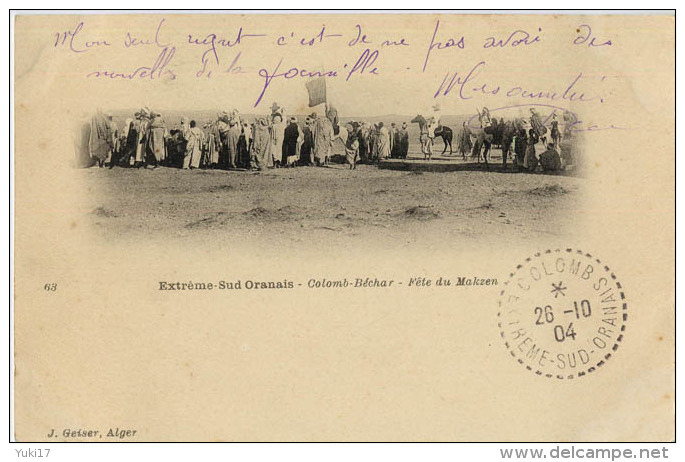 Mon seul regret c'est de ne pas avoir des
nouvelles de la famille.
Mes amitiés
63
Extrême-Sud Oranais - Colomb-Béchar - Fête du Makzen
COLOMB
EXTRÊME-SUD-ORANAIS
*
26 -10
04
J. Geiser, Alger
Yuki17
www.delcampe.net